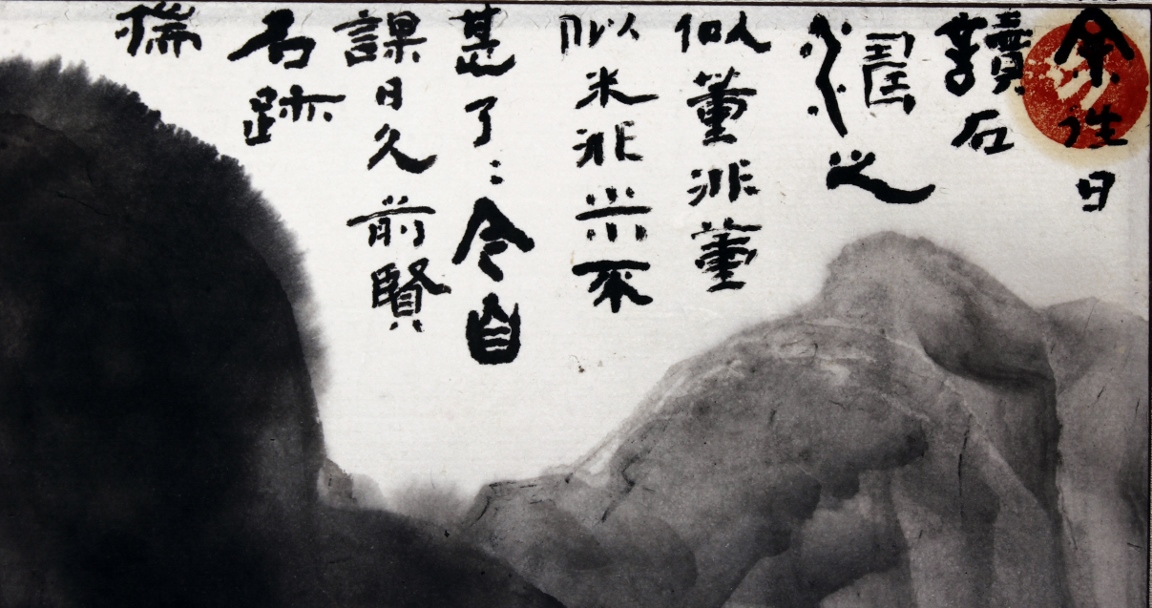 余往日
讀石
之
似董非董
似米非米不
甚了〻今自
課日久前賢
名跡